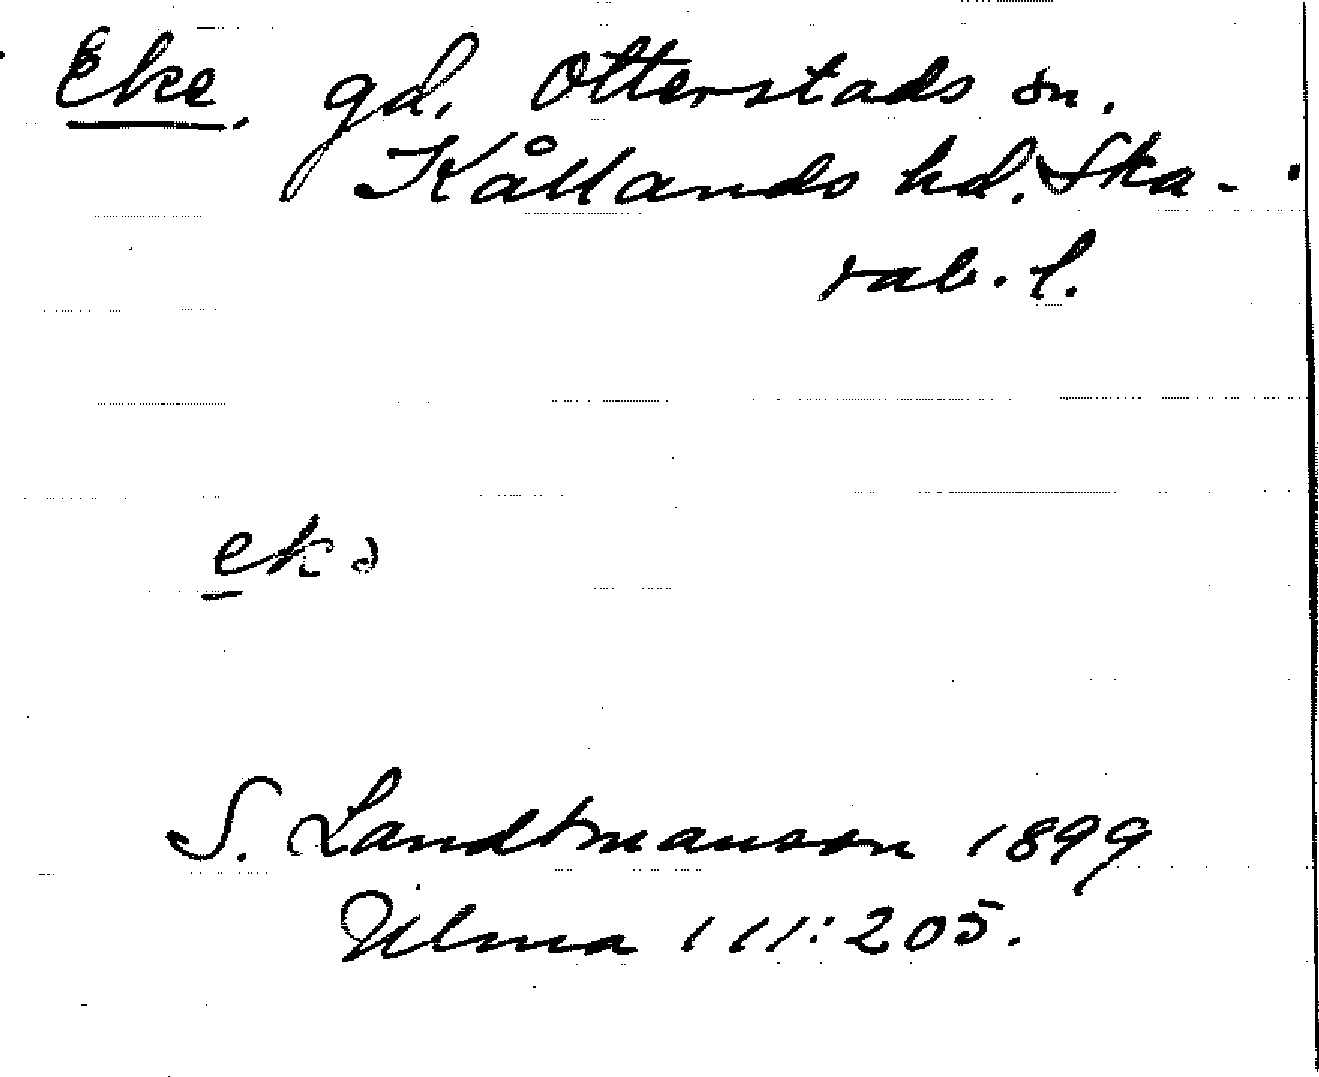 Eke, gd. Otterstads sn.
Kållands hd. Ska-
rab. l.
ekə
S. Landtmanson 1899
Ulma 111:205.